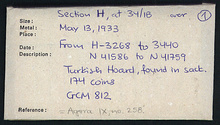 Section H, at 34/18 over 1
Metal : May 13, 1933
Place :
Date : From H-3268 to 3440
Description : N 41586 to N 41759
Turkish Hoard, found in sack.
174 coins
GCM 812
Reference : = Agora IX no. 258.